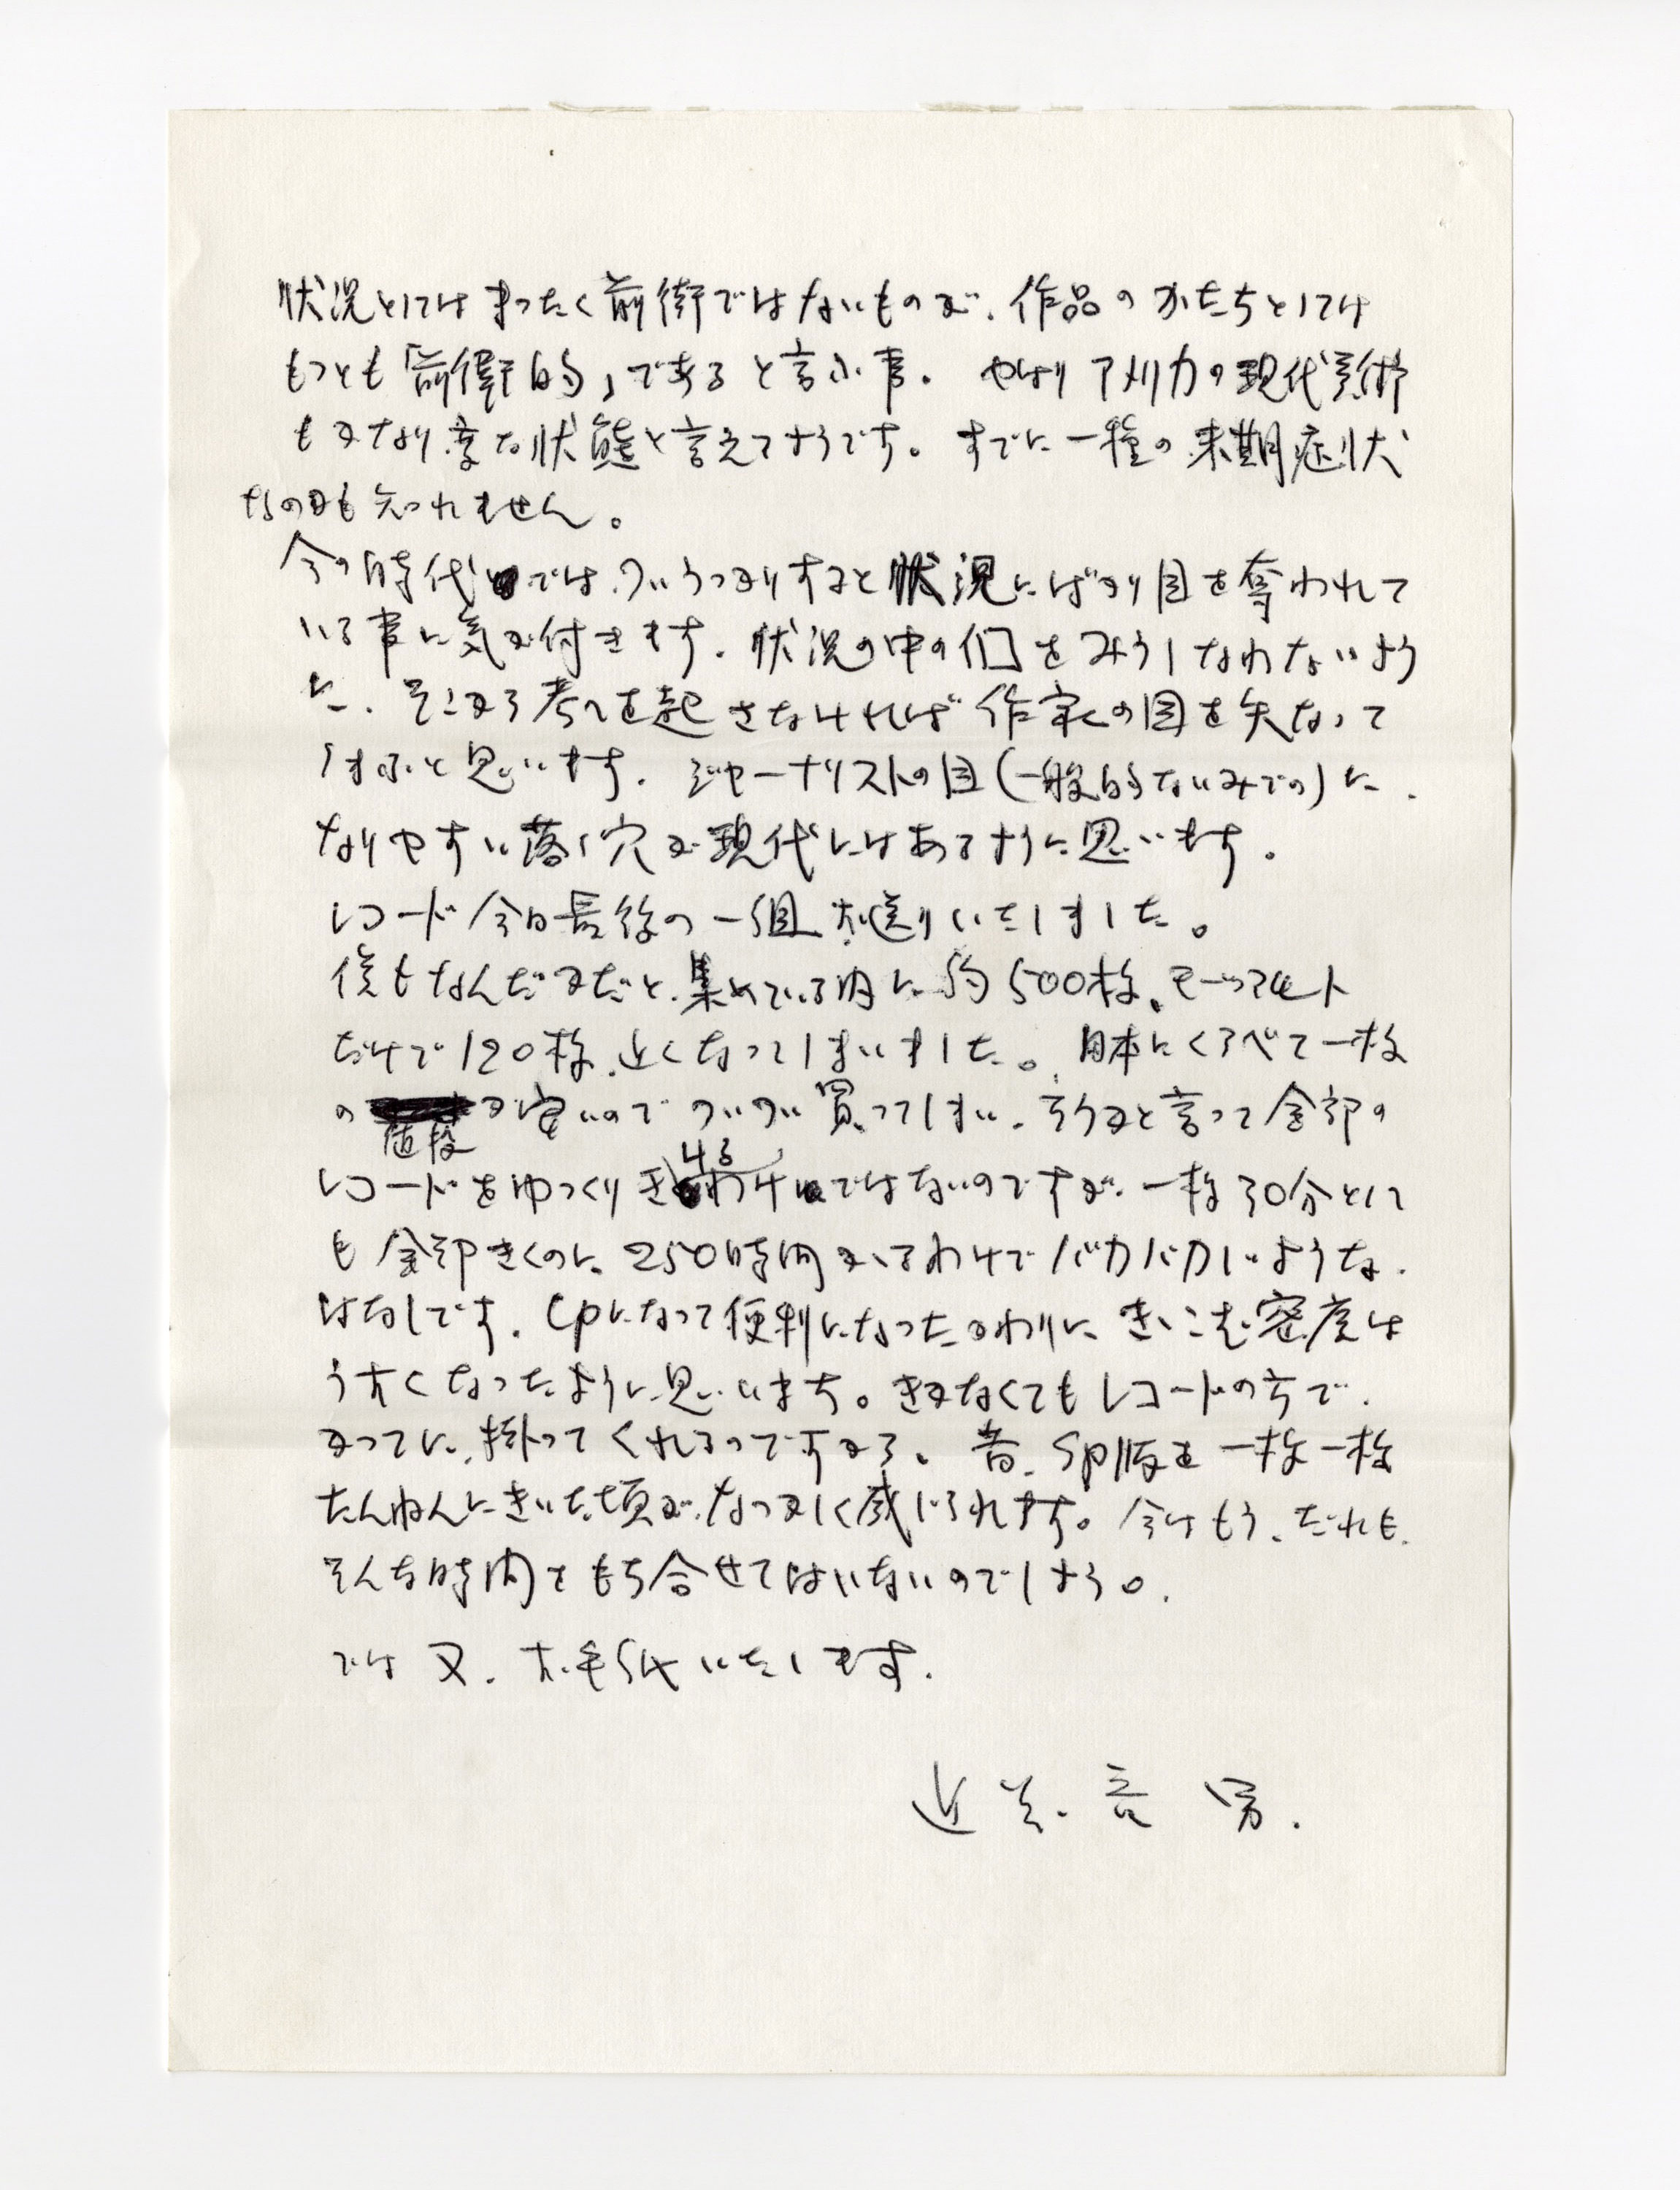 状況としてはまったく前衛ではないものが、作品のかたちとしては
もっとも「前衛的」であると言ふ事。やはりアメリカの現代美術
もかなり変な状態と言えさうです。すでに一種の末期症状
なのかも知れません。
今の時代では、ついうっかりすると状況にばかり目を奪われて
いる事に気が付きます。状況の中の個をみうしなわないよう
に、そこから考へを起さなければ作家の目を失なって
しまふと思います。ジャーナリストの目(一般的ないみでの)に、
なりやすい落し穴が現代にはあるように思います。
レコード今日最後の一組お送りいたしました。
僕もなんだかだと、集めている内に約500枚、モーツアルト
だけで120枚近くなってしまいました。日本にくらべて一枚
の値段が安いのでついつい買ってしまい、さうかと言って全部の
レコードをゆっくりきけるわけではないのですが、一枚30分として
も全部きくのに250時間かゝるわけでバカバカしいような、
はなしです。LPになって便利になったかわりに、きゝこむ密度は
うすくなったように思います。きかなくてもレコードの方で、
かってに、掛ってくれるのですから。昔、SP版を一枚一枚
たんねんにきいた頃が、なつかしく感じられます。今はもう、だれも、
そんな時間をもち合せてはいないのでしょう。
では又、お手紙いたします。
近美、育男.